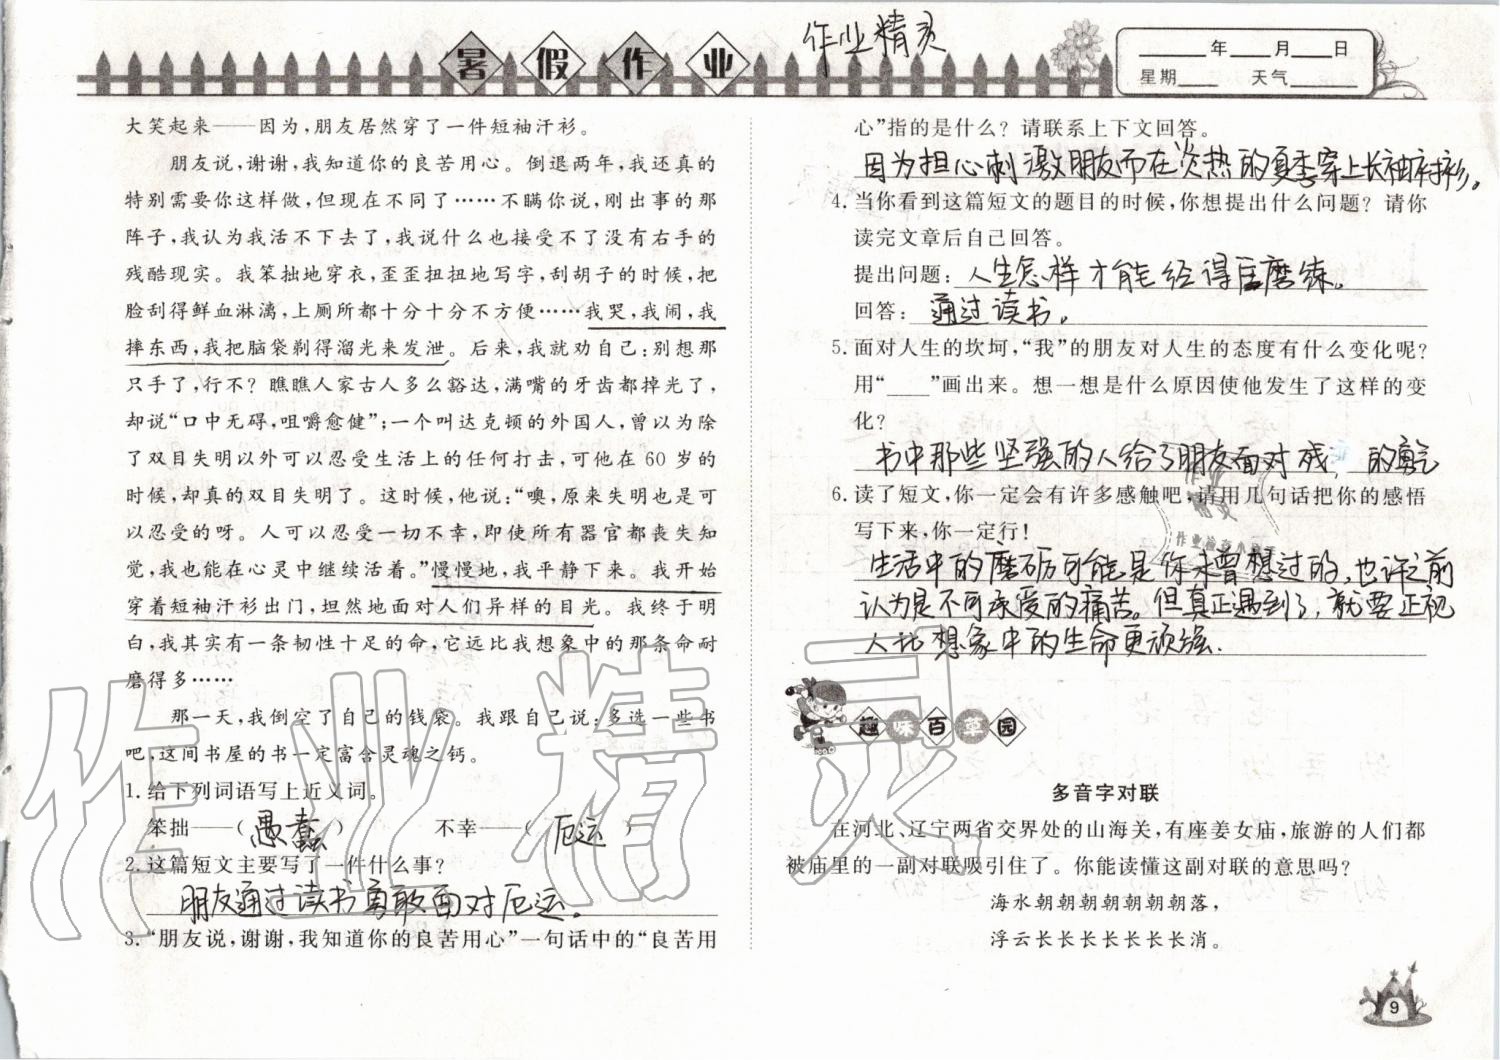 暑假作业
作业精灵
____年____月____日
星期____ 天气______
大笑起来——因为,朋友居然穿了一件短袖汗衫。
朋友说,谢谢,我知道你的良苦用心。倒退两年,我还真的
特别需要你这样做,但现在不同了……不瞒你说,刚出事的那
阵子,我认为我活不下去了,我说什么也接受不了没有右手的
残酷现实。我笨拙地穿衣,歪歪扭扭地写字,刮胡子的时候,把
脸刮得鲜血淋漓,上厕所都十分十分不方便……我哭,我闹,我
摔东西,我把脑袋剃得溜光来发泄。后来,我就劝自己:别想那
只手了,行不?瞧瞧人家古人多么豁达,满嘴的牙齿都掉光了,
却说“口中无碍,咀嚼愈健”;一个叫达克顿的外国人,曾以为除
了双目失明以外可以忍受生活上的任何打击,可他在 60 岁的
时候,却真的双目失明了。这时候,他说:“噢,原来失明也是可
以忍受的呀。人可以忍受一切不幸,即使所有器官都丧失知
觉,我也能在心灵中继续活着。”慢慢地,我平静下来。我开始
穿着短袖汗衫出门,坦然地面对人们异样的目光。我终于明
白,我其实有一条韧性十足的命,它远比我想象中的那条命耐
磨得多……
那一天,我倒空了自己的钱袋。我跟自己说:多选一些书
吧,这间书屋的书一定富含灵魂之钙。
1. 给下列词语写上近义词。
笨拙——( 愚蠢 ) 不幸——( 厄运 )
2. 这篇短文主要写了一件什么事?
朋友通过读书勇敢面对厄运。
3. “朋友说,谢谢,我知道你的良苦用心”一句话中的“良苦用
心”指的是什么?请联系上下文回答。
因为担心刺激朋友而在炎热的夏季穿上长袖衬衫。
4. 当你看到这篇短文的题目的时候,你想提出什么问题?请你
读完文章后自己回答。
提出问题:人生怎样才能经得巨磨练。
回答:通过读书。
5. 面对人生的坎坷,“我”的朋友对人生的态度有什么变化呢?
用“____”画出来。想一想是什么原因使他发生了这样的变
化?
书中那些坚强的人给了朋友面对残 的勇气
6. 读了短文,你一定会有许多感触吧,请用几句话把你的感悟
写下来,你一定行!
生活中的磨砺可能是你未曾想过的,也许之前
认为是不可承爱的痛苦。但真正遇到了,就要正视
人比想象中的生命更顽强.
趣味百草园
多音字对联
在河北、辽宁两省交界处的山海关,有座姜女庙,旅游的人们都
被庙里的一副对联吸引住了。你能读懂这副对联的意思吗?
海水朝朝朝朝朝朝朝落,
浮云长长长长长长长消。
9
作业精灵